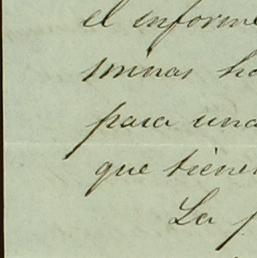 el informe
minas ha
para una
que tienen
La p